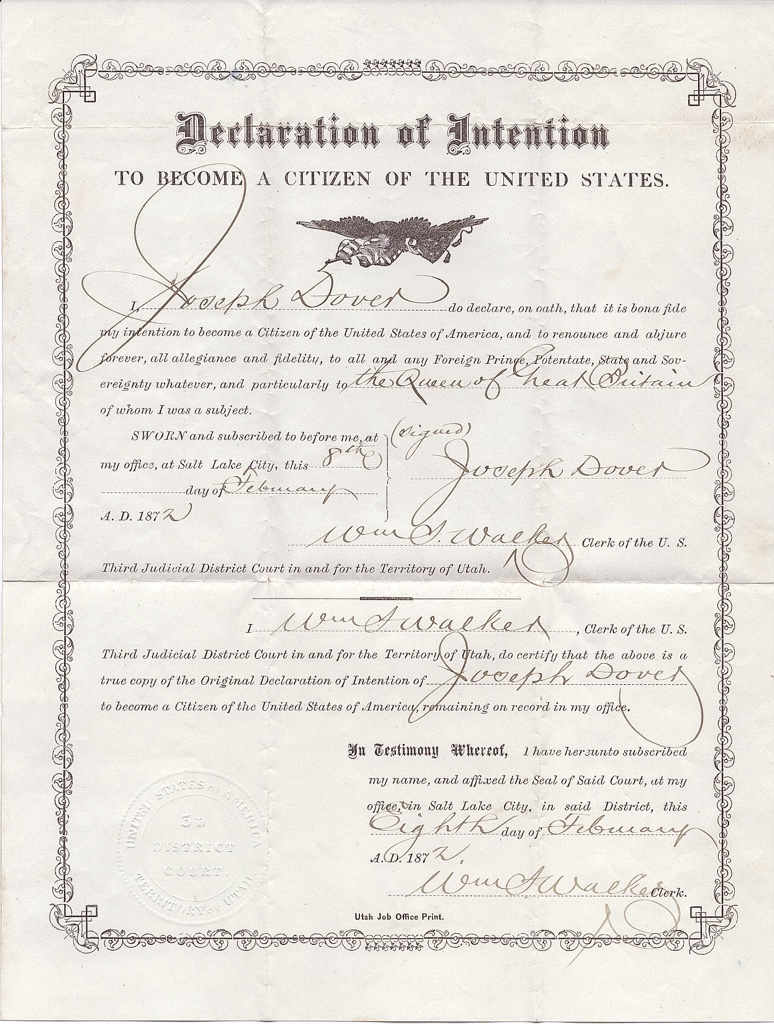 Declaration of Intention
TO BECOME A CITIZEN OF THE UNITED STATES.
I, Joseph Dover do declare, on oath, that it is bona fide
my intention to become a Citizen of the United States of America, and to renounce and abjure
forever, all allegiance and fidelity, to all and any Foreign Prince, Potentate, State and Sov-
ereignty whatever, and particularly to the Queen of Great Britain
of whom I was a subject.
SWORN and subscribed to before me, at
my office, at Salt Lake City, this 8th
day of February
A. D. 1872
(signed)
Joseph Dover
Wm S. Walker Clerk of the U. S.
Third Judicial District Court in and for the Territory of Utah.
I Wm S Walker, Clerk of the U. S.
Third Judicial District Court in and for the Territory of Utah, do certify that the above is a
true copy of the Original Declaration of Intention of Joseph Dover
to become a Citizen of the United States of America, remaining on record in my office.
In Testimony Whereof, I have hereunto subscribed
my name, and affixed the Seal of Said Court, at my
office, in Salt Lake City, in said District, this
Eighth day of February
A. D. 1872.
Wm S Walker Clerk.
UNITED STATES OF AMERICA
3D
DISTRICT
COURT
TERRITORY OF UTAH
Utah Job Office Print.